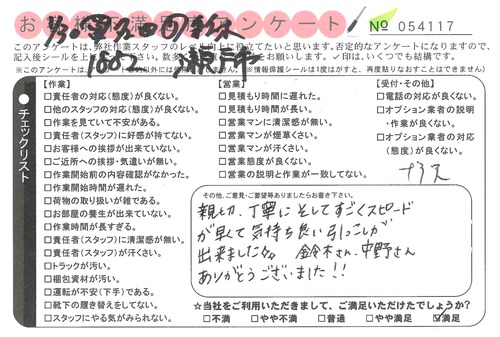 お客様満足度アンケート
No 054117
このアンケートは、弊社作業スタッフのレベル向上に役立てたいと思います。否定的なアンケートになりますので、
記入後シールを上に お願いします。✓印は、いくつでも結構です。
以外には ※情報保護シールは1度はがすと、再度貼りなおすことはできません)
1882
チェックリスト
【作業】
□責任者の対応(態度)が良くない。
□他のスタッフの対応(態度)が良くない。
□作業を見ていて不安がある。
□責任者(スタッフ)に好感が持てない。
□お客様への挨拶が出来ていない。
□ご近所への挨拶・気遣いが無い。
□作業開始前の内容確認がなかった。
□作業開始時間が遅れた。
□荷物の取り扱いが雑である。
□お部屋の養生が出来ていない。
□作業時間が長すぎる。
□責任者(スタッフ)に清潔感が無い。
□責任者(スタッフ)が汗くさい。
□トラックが汚い。
□梱包資材が汚い。
□運転が不安(下手)である。
□靴下の履き替えをしてない。
□スタッフにやる気がみられない。
【営業】
□見積もり時間に遅れた。
□見積もり時間が長い。
□営業マンに清潔感が無い。
□営業マンが煙草くさい。
□営業マンが汗くさい。
□営業態度が良くない。
□営業の説明と作業が一致してない。
【受付・その他】
□電話の対応が良くない。
□オプション業者の説明
・作業が良くない。
□オプション業者の対応
(態度)が良くない。
その他、ご意見・ご要望等ありましたらお書き下さい。
親切、丁寧に そしてすごくスピード
が早くて気持ち良い引っこしが
出来ました 鈴木さん、中野さん
ありがとうございました!!
☆当社をご利用いただきまして、ご満足いただけたでしょうか?
□不満 □やや不満 □普通 □やや満足 ☑満足